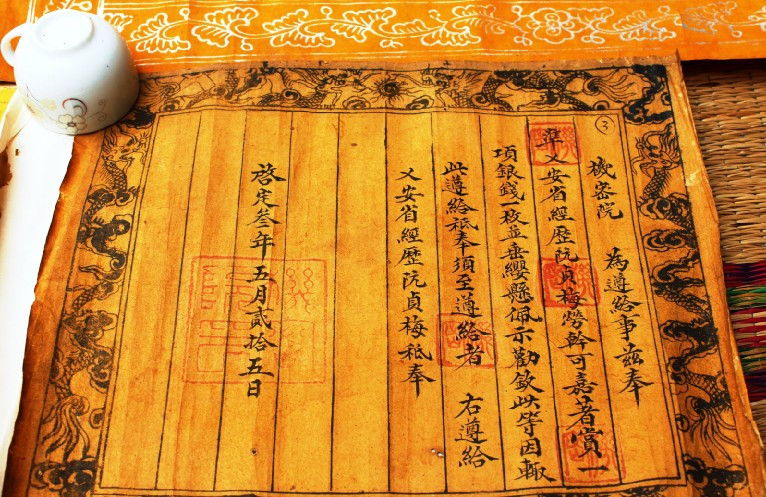 ③
機密院　為遵給事茲奉
準乂安省經歷阮貞梅勞幹可嘉著賞一
項銀錢一枚並垂纓懸佩示勸欽此等因輒
此遵給祗奉須至遵給者　右遵給
乂安省經歷阮貞梅祗奉
啓定叁年五月貳拾五日